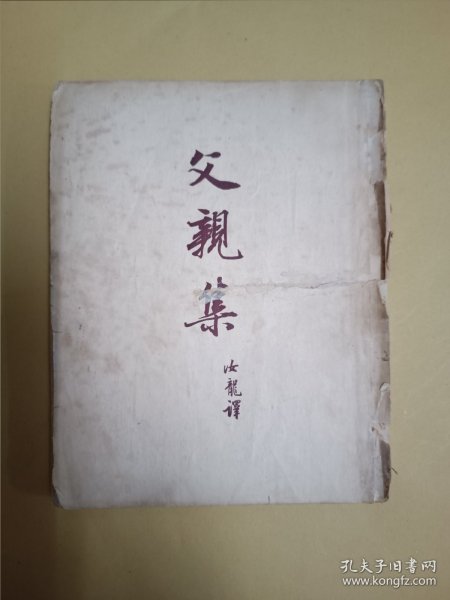 父親集
汝龍譯
孔夫子旧书网
www.kongfz.com